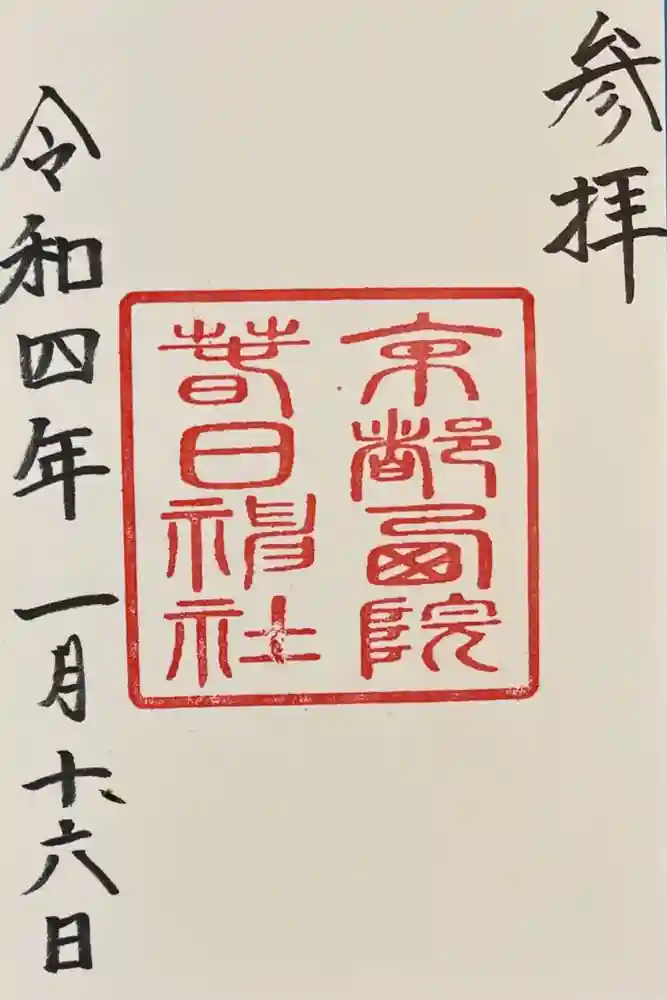 参拝
京都西院
春日神社
令和四年一月十六日